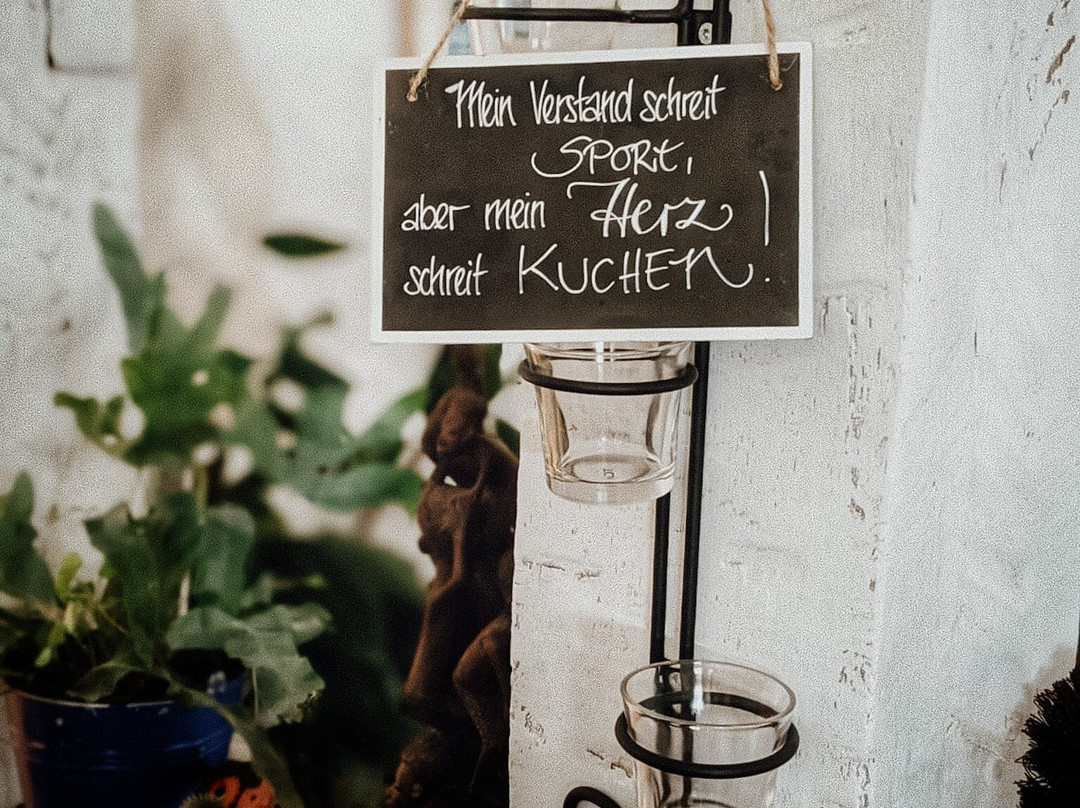 Mein Verstand schreit
SPORt,
aber mein Herz
schreit KUCHEN!